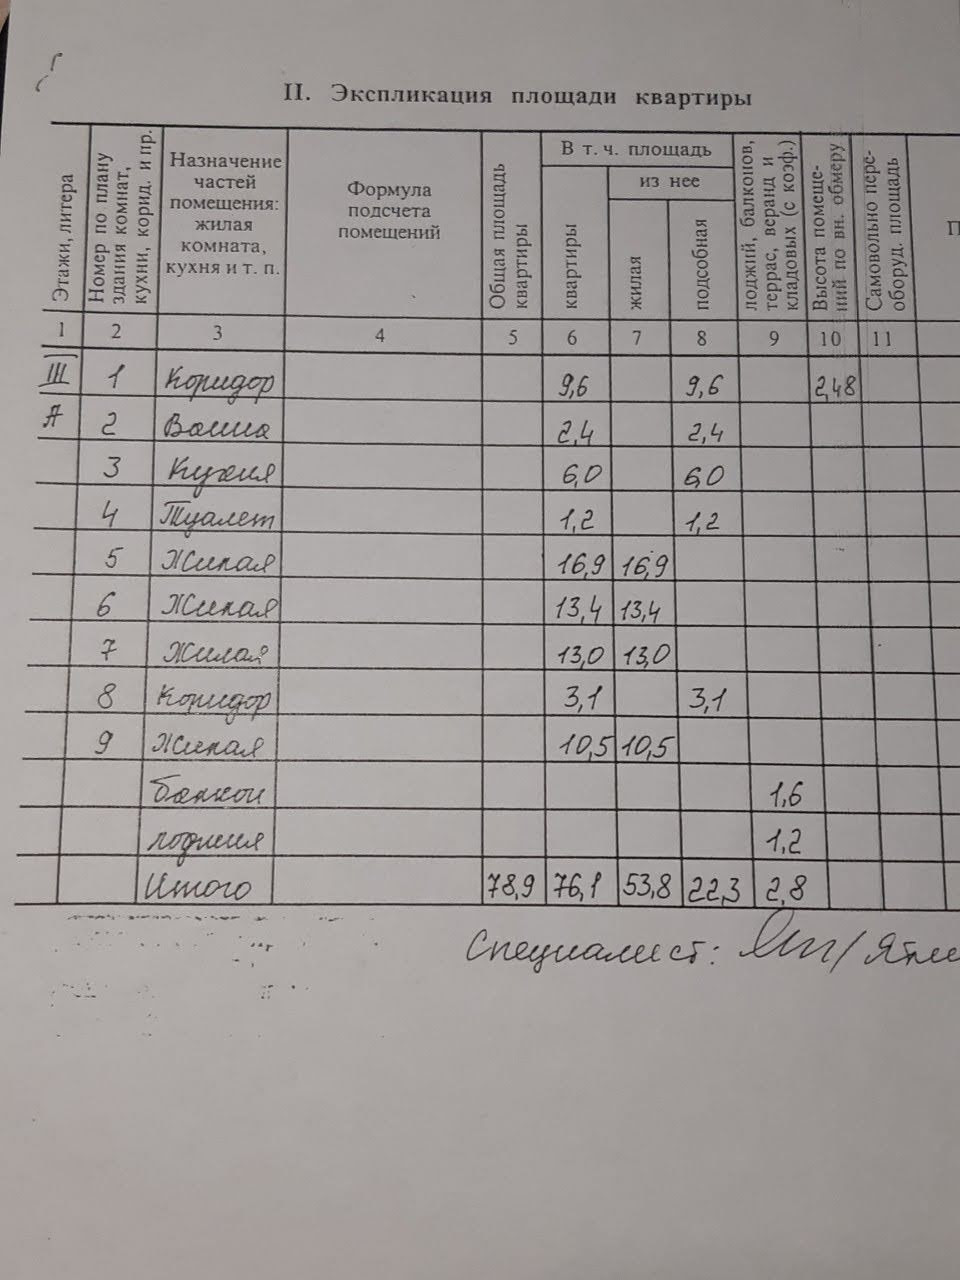 II. Экспликация площади квартиры
Этажи, литера
Номер по плану
здания комнат,
кухни, корид. и пр.
Назначение
частей
помещения:
жилая
комната,
кухня и т. п.
Формула
подсчета
помещений
Общая площадь
квартиры
В т. ч. площадь
квартиры
из нее
жилая
подсобная
лоджий, балконов,
террас, веранд и
кладовых (с коэф.)
Высота помеще-
ний по вн. обмеру
Самовольно пере-
оборуд. площадь
П
1 2 3 4 5 6 7 8 9 10 11
III 1 Коридор 9,6 9,6 2,48
А 2 Ванна 2,4 2,4
3 Кухня 6,0 6,0
4 Туалет 1,2 1,2
5 Жилая 16,9 16,9
6 Жилая 13,4 13,4
7 Жилая 13,0 13,0
8 Коридор 3,1 3,1
9 Жилая 10,5 10,5
балкон 1,6
лоджия 1,2
Итого 78,9 76,1 53,8 22,3 2,8
Специалист: